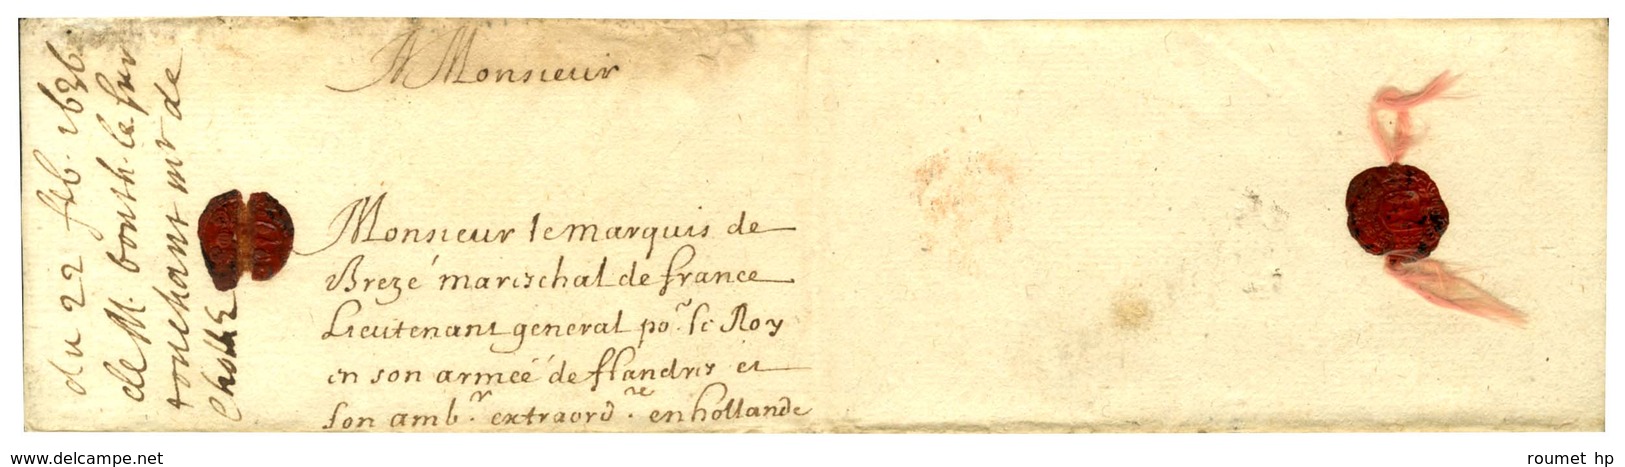 A Monsieur
Monsieur le marquis de
Brezé mareschal de france
Lieutenant general po.r le Roy
en son armée de flandres et
son amb.r extraord.re en hollande
du 22 feb. 1636
de M. bouth. le
touchant mr de
www.delcampe.net
roumet hp